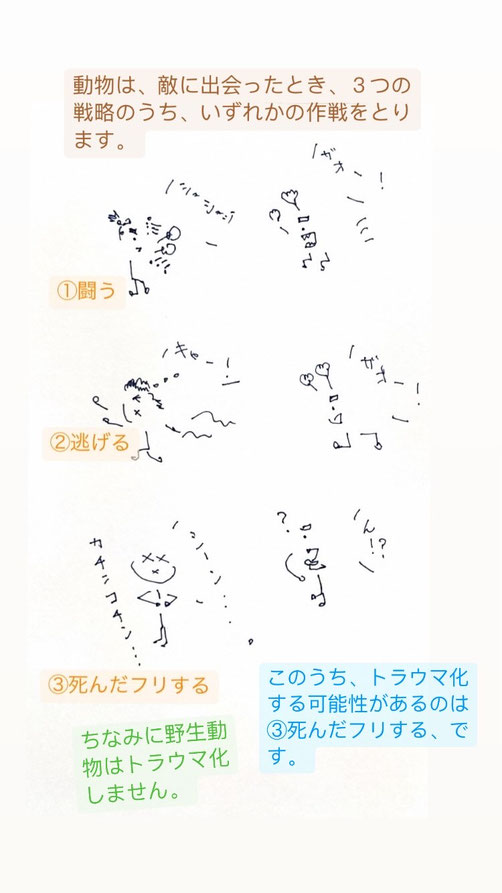 動物は、敵に出会ったとき、３つの
戦略のうち、いずれかの作戦をとり
ます。
ガオー！
①闘う
キャー！
ガオー！
②逃げる
？
ん！？
シーン・・・
カチンコチン・・・
③死んだフリする
このうち、トラウマ化
する可能性があるのは
③死んだフリする、で
す。
ちなみに野生動
物はトラウマ化
しません。